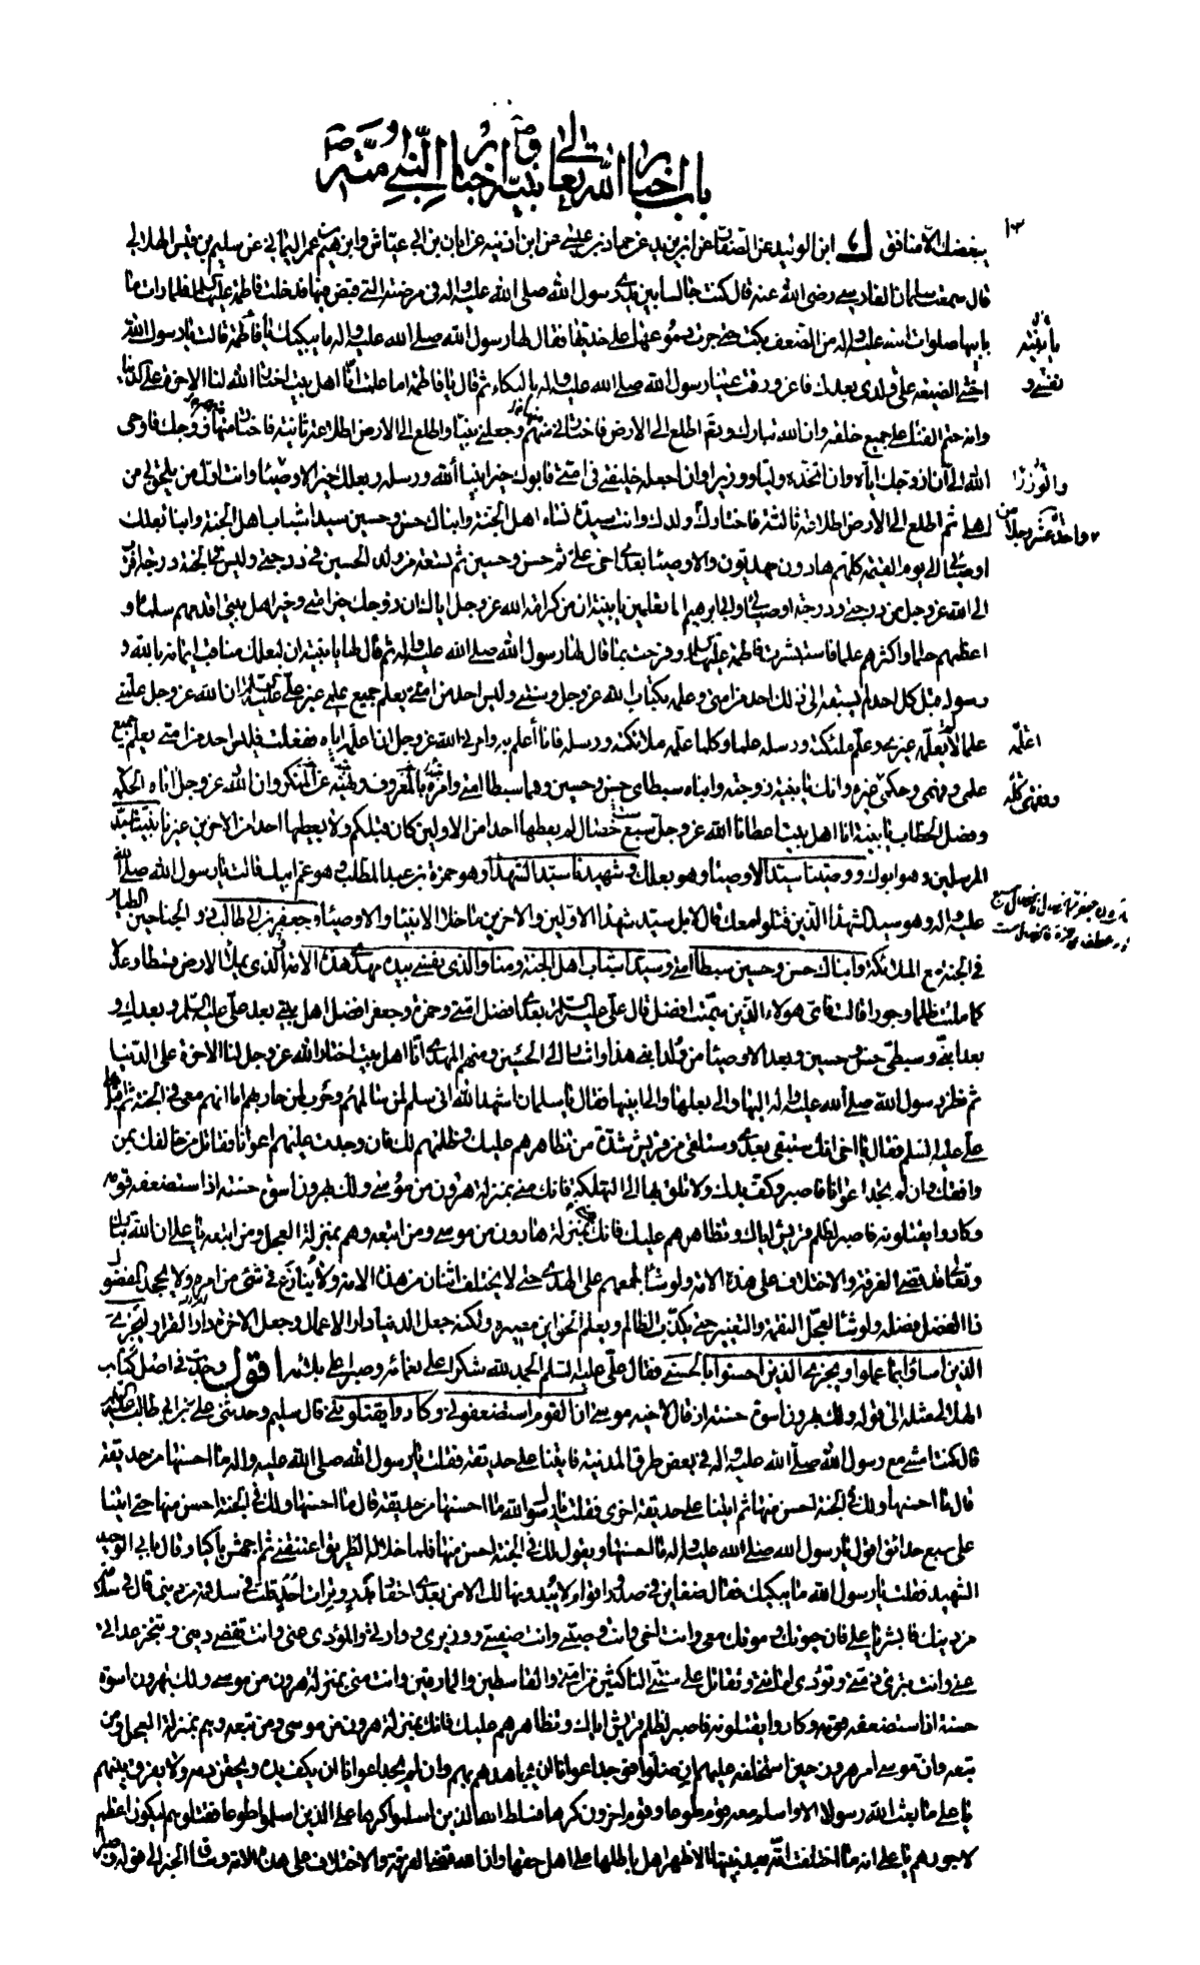 باب اخبار الله تعالى نبيه و اخبار النبي امته
يبغضك الا منافق ك ابن الوليد عن الصفار عن ابن يزيد عن حماد بن عيسى عن ابن اذينه عن ابان بن ابي عياش و ابرهيم بن عمر اليماني عن سليم بن قيس الهلالي
قال سمعت سلمان الفارسي رضي الله عنه قال كنت جالسا بين يدي رسول الله صلى الله عليه واله في مرضته التي قبض فيها فدخلت فاطمة عليها السلم فلما رات ما
بابيها صلوات الله عليه واله من الضعف بكت حتى جرت دموعها على خديها فقال لها رسول الله صلى الله عليه واله ما يبكيك يا فاطمة قالت يا رسول الله
اخشى الضيعه على ولدي بعدك فاغرورقت عينا رسول الله صلى الله عليه واله بالبكاء ثم قال يا فاطمة اما علمت انا اهل بيت اختار الله لنا الاخرة على الدنيا
وانه حتم الفناء على جميع خلقه وان الله تبارك وتعالى اطلع الى الارض فاختارني منهم وجعلني نبيا واطلع الى الارض اطلاعة ثانية فاختار منها زوجك فاوحى
الله الي ان ازوجك اياه وان اتخذه وليا ووزيرا وان اجعله خليفتي في امتي فابوك خير انبياء الله ورسله وبعلك خير الاوصياء وانت اول من يلحق بي من
اهلي ثم اطلع الى الارض اطلاعة ثالثة فاختارك وولدك وانت سيدة نساء اهل الجنة وابناك حسن وحسين سيدا شباب اهل الجنة وابناء بعلك
اوصيائي الى يوم القيمة كلهم هادون مهديون والاوصياء بعدي اخي علي ثم حسن وحسين ثم تسعة من ولد الحسين في درجتي وليس في الجنة درجة اقرب
الى الله عز وجل من درجتي ودرجة اوصيائي وابي ابرهيم اما تعلمين يا بنية ان من كرامة الله عز وجل اياك ان زوجك خير امتي وخير اهل بيتي اقدمهم سلما و
اعظمهم حلما واكثرهم علما فاستبشرت فاطمة عليها السلم وفرحت بما قال لها رسول الله صلى الله عليه واله ثم قال لها يا بنية ان لبعلك مناقب ايمانه بالله و
رسوله قبل كل احد لم يسبقه الى ذلك احد من امتي وعلمه بكتاب الله عز وجل وسنتي وليس احد من امتي يعلم جميع علمي غير علي عليه السلم ان الله عز وجل علمني
علما لا يعلمه غيري وعلم ملئكته ورسله علما وكلما علمه ملائكته ورسله فانا اعلم به وامرني الله عز وجل ان اعلمه اياه ففعلت فليس احد من امتي يعلم جميع
علمي وفهمي وحكمي غيره وانك يا بنية زوجته وابناه سبطاي حسن وحسين وهما سبطا امتي وامره بالمعروف ونهيه عن المنكر وان الله عز وجل اتاه الحكمة
وفصل الخطاب يا بنية انا اهل بيت اعطانا الله عز وجل سبع خصال لم يعطها احدا من الاولين كان قبلكم ولا يعطيها احدا من الاخرين غيرنا نبينا سيد
المرسلين وهو ابوك ووصينا سيد الاوصياء وهو بعلك وشهيدنا سيد الشهداء وهو حمزة بن عبد المطلب وهو عم ابيك قالت يا رسول الله صلى الله
عليه واله وهو سيد الشهداء الذين قتلوا معك قال لا بل سيد شهداء الاولين والاخرين ما خلا الانبياء والاوصياء وجعفر بن ابي طالب ذو الجناحين الطيار
في الجنة مع الملائكة وابناك حسن وحسين سبطا امتي وسيدا شباب اهل الجنة ومنا والذي نفسي بيده مهدي هذه الامة الذي يملأ الارض قسطا وعدلا
كما ملئت ظلما وجورا قالت فاي هؤلاء الذين سميت افضل قال علي عليه السلم بعدي افضل امتي وحمزة وجعفر افضل اهل بيتي بعد علي عليه السلم وبعدك و
بعد ابني وسبطي حسن وحسين وبعد الاوصياء من ولد ابني هذا واشار الى الحسين ومنهم المهدي انا اهل بيت اختار الله عز وجل لنا الاخرة على الدنيا
ثم نظر رسول الله صلى الله عليه واله اليها والى بعلها والى ابنيها فقال يا سلمان اشهد الله اني سلم لمن سالمهم وحرب لمن حاربهم اما انهم معي في الجنة ثم اقبل على
علي عليه السلم فقال يا اخي انك ستبقى بعدي وستلقى من قريش شدة من تظاهرهم عليك وظلمهم لك فان وجدت عليهم اعوانا فقاتل من خالفك بمن
وافقك وان لم تجد اعوانا فاصبر وكف يدك ولا تلق بها الى التهلكة فانك مني بمنزلة هرون من موسى ولك بهرون اسوة حسنة اذا استضعفه قومه
وكادوا يقتلونه فاصبر لظلم قريش اياك وتظاهرهم عليك فانك بمنزلة هارون من موسى ومن اتبعه وهم بمنزلة العجل ومن اتبعه يا علي ان الله تبارك
وتعالى قد قضى الفرقة والاختلاف على هذه الامة ولو شاء لجمعهم على الهدى حتى لا يختلف اثنان من هذه الامة ولا ينازع في شئ من امره ولا يجحد المفضول
ذا الفضل فضله ولو شاء لعجل النقمة والتغيير حتى يكذب الظالم ويعلم الحق اين مصيره ولكنه جعل الدنيا دار الاعمال وجعل الاخرة دار القرار ليجزي
الذين اساؤا بما عملوا ويجزي الذين احسنوا بالحسنى فقال علي عليه السلم الحمد لله شكرا على نعمائه وصبرا على بلائه اقول وجدت في اصل كتاب
الهلالي مثله الى قوله ولك بهرون اسوة حسنة اذ قال لاخيه موسى ان القوم استضعفوني وكادوا يقتلونني قال سليم وحدثني علي بن ابي طالب عليه السلم
قال كنت امشي مع رسول الله صلى الله عليه واله في بعض طرق المدينة فاتينا على حديقة فقلت يا رسول الله صلى الله عليه واله ما احسنها من حديقة
قال ما احسنها ولك في الجنة احسن منها ثم اتينا على حديقة اخرى فقلت يا رسول الله ما احسنها من حديقة قال ما احسنها ولك في الجنة احسن منها حتى اتينا
على سبع حدائق اقول يا رسول الله صلى الله عليه واله ما احسنها ويقول لك في الجنة احسن منها فلما خلا له الطريق اعتنقني ثم اجهش باكيا وقال بابي الوحيد
الشهيد فقلت يا رسول الله ما يبكيك فقال ضغاين في صدور اقوام لا يبدونها لك الا من بعدي احقاد بدر وترات احد قلت في سلامة من ديني قال في سلامة
من دينك فابشر يا علي فان حيوتك وموتك معي وانت اخي وانت وصيي وانت صفيي ووزيري ووارثي والمؤدي عني وانت تقضي ديني وتنجز عداتي
عني وانت تبرئ ذمتي وتؤدي امانتي وتقاتل على سنتي الناكثين من امتي والقاسطين والمارقين وانت مني بمنزلة هرون من موسى ولك بهرون اسوة
حسنة اذا استضعفه قومه وكادوا يقتلونه فاصبر لظلم قريش اياك وتظاهرهم عليك فانك بمنزلة هرون من موسى ومن تبعه وهم بمنزلة العجل ومن
تبعه وان موسى امر هرون حين استخلفه عليهم ان ضلوا فوجد اعوانا ان يجاهدهم بهم وان لم يجد اعوانا ان يكف يده ويحقن دمه ولا يفرق بينهم
يا علي ما بعث الله رسولا الا واسلم معه قوم طوعا وقوم اخرون كرها فسلط الله الذين اسلموا كرها على الذين اسلموا طوعا فقتلوهم ليكون اعظم
لاجورهم يا علي انه ما اختلفت امة بعد نبيها الا ظهر اهل باطلها على اهل حقها وان الله قضى الفرقة والاختلاف على هذه الامة وساق الخبر الى قوله و
يا بنية
نفسي و
والوزراء
واحد عشر رجلا من
اعلمه
وفهمي كله